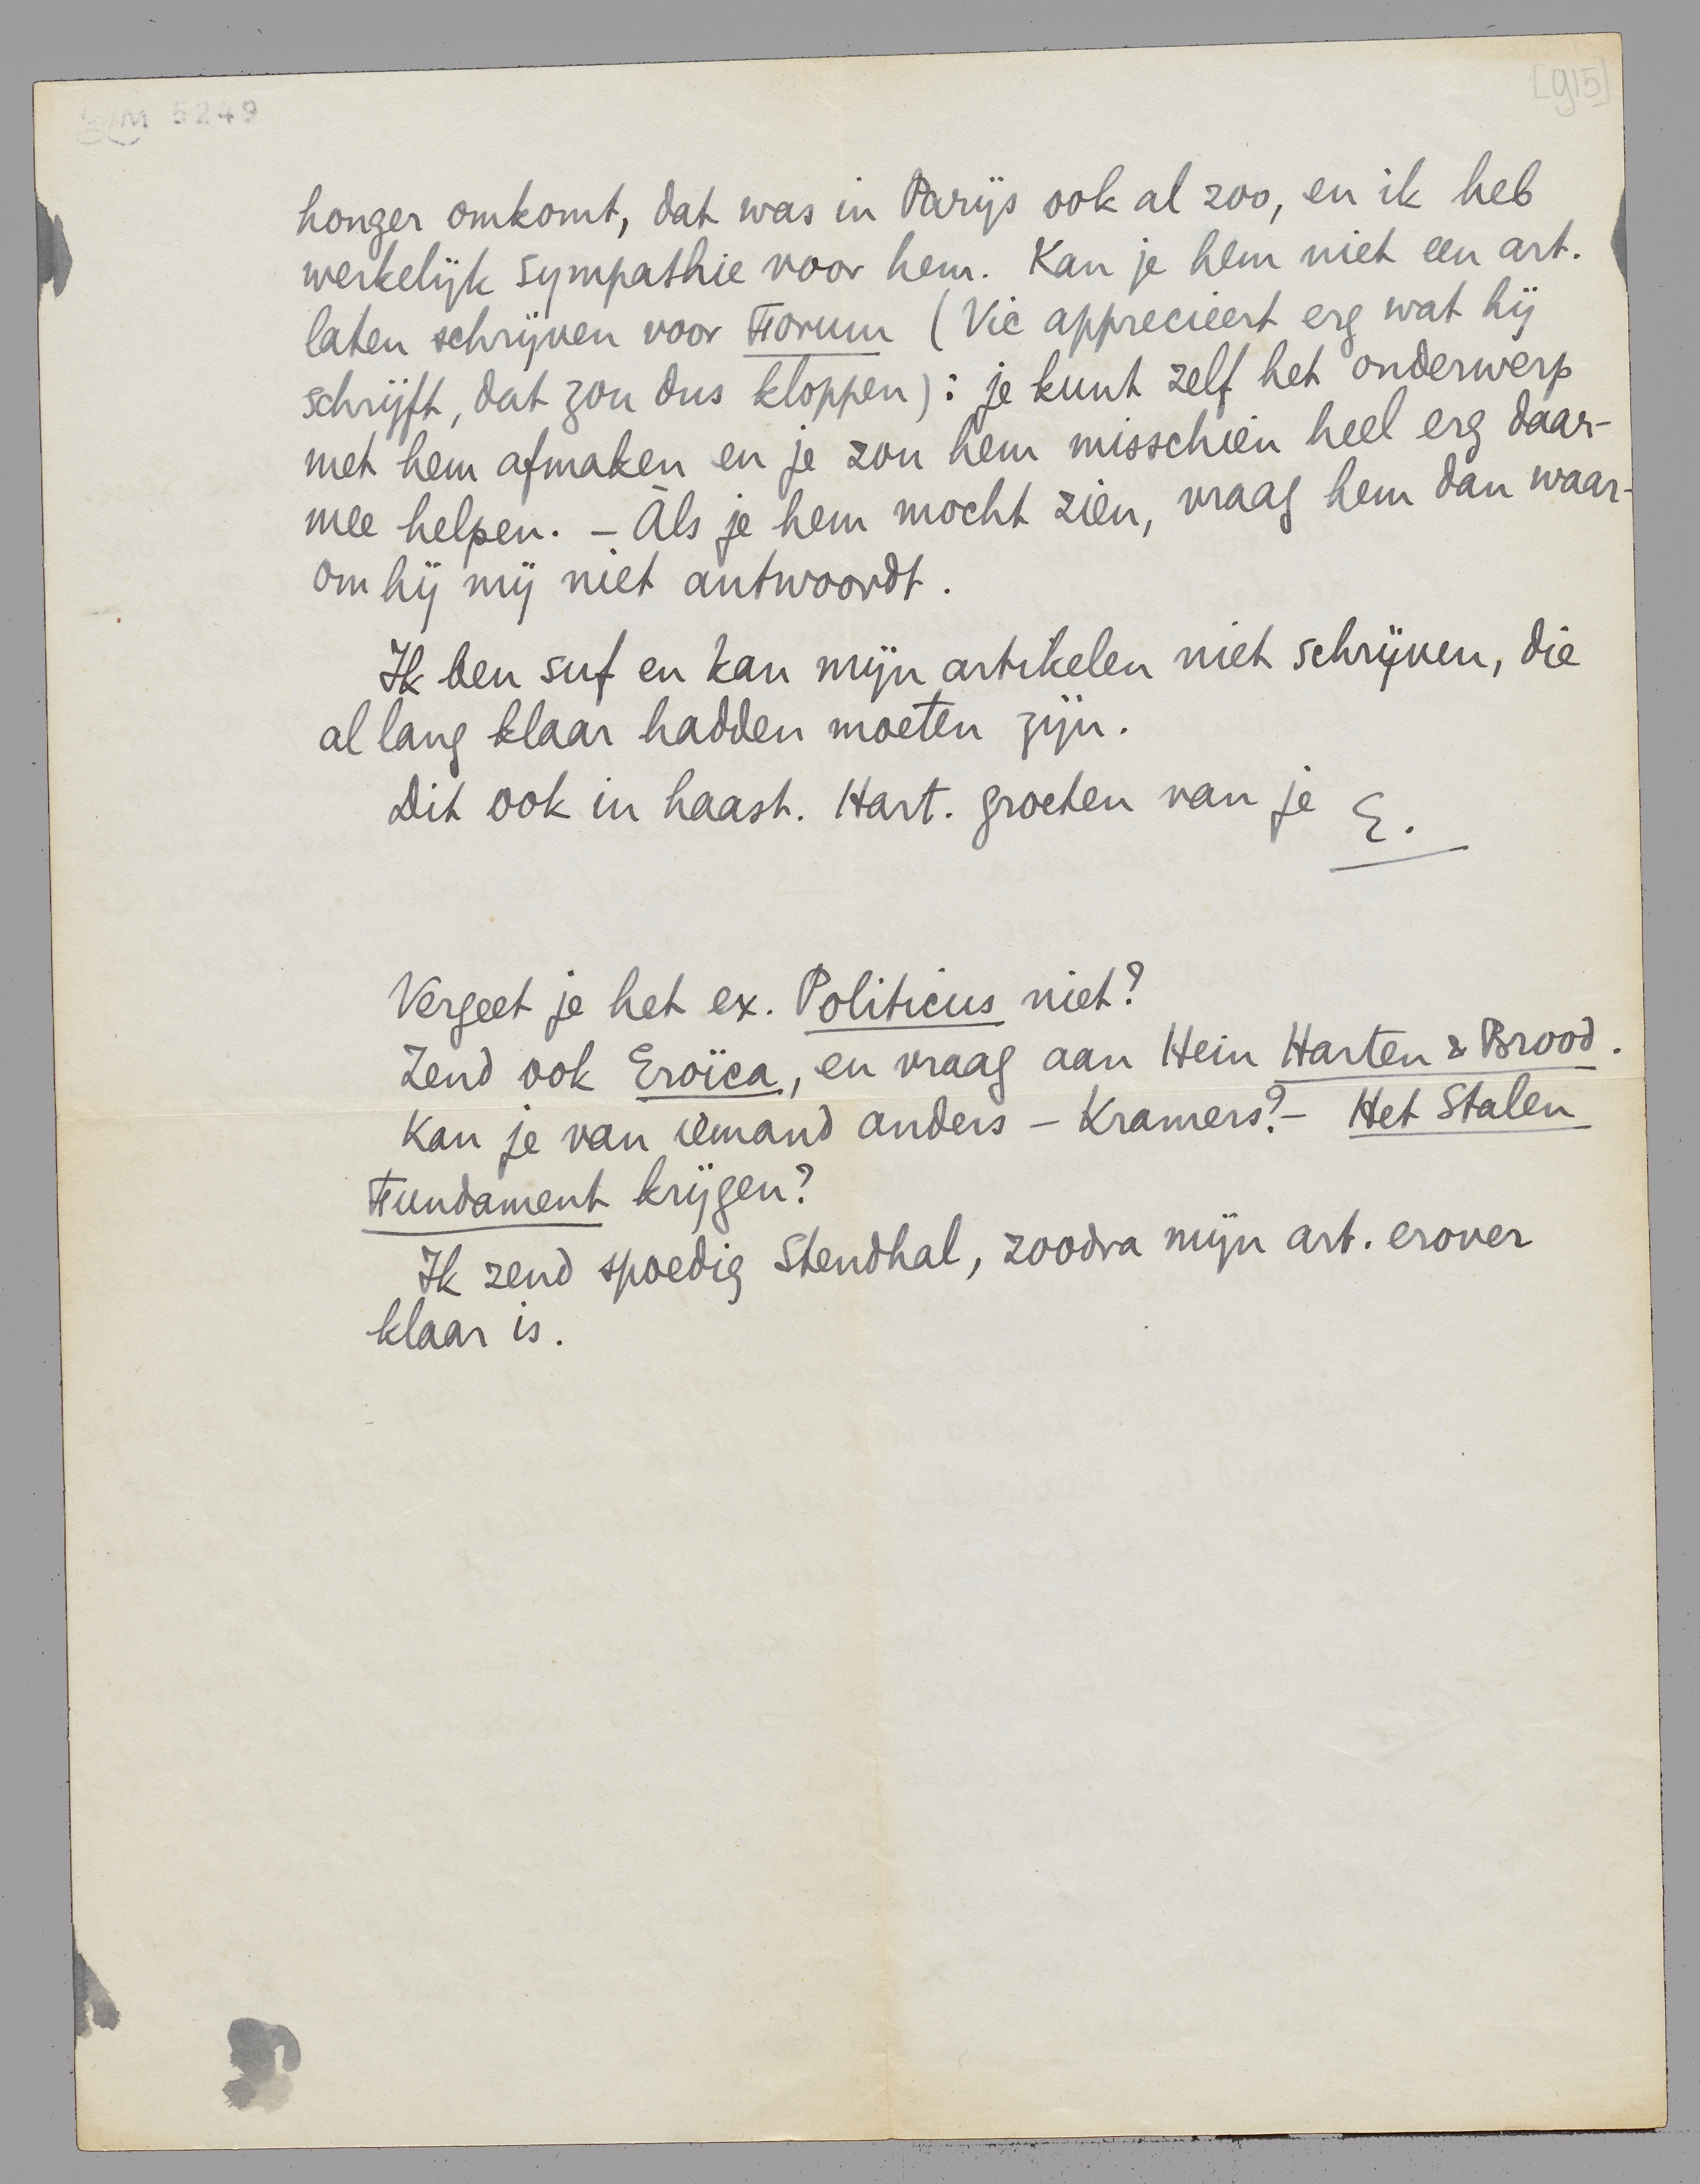 M 5249
[915]
honger omkomt, dat was in Parijs ook al zoo, en ik heb
werkelijk sympathie voor hem. Kan je hem niet een art.
laten schrijven voor Forum (Vic apprecieert erg wat hij
schrijft, dat zou dus kloppen): je kunt zelf het onderwerp
met hem afmaken en je zou hem misschien heel erg daar-
mee helpen. – Als je hem mocht zien, vraag hem dan waar-
om hij mij niet antwoordt.
Ik ben suf en kan mijn artikelen niet schrijven, die
al lang klaar hadden moeten zijn.
Dit ook in haast. Hart. groeten van je E.
Vergeet je het ex. Politicus niet?
Zend ook Eroïca, en vraag aan Hein Harten & Brood.
Kan je van iemand anders – Kramers? – Het Stalen
Fundament krijgen?
Ik zend spoedig Stendhal, zoodra mijn art. erover
klaar is.